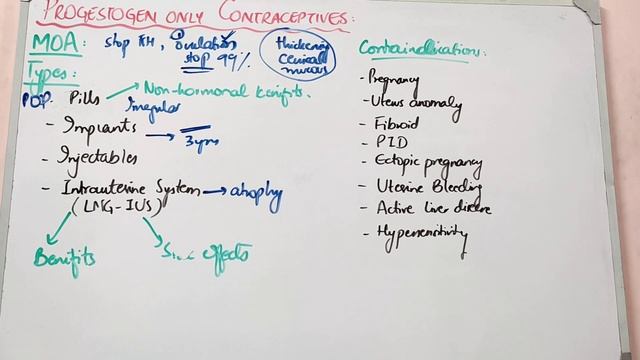 PROGESTOGEN ONLY CONTRACEPTIVES:
MOA: stop LH, Ovulation stop 99%. thickening cervical mucous
Types:
POP. Pills → Non-hormonal benifits.
Irregular
- Implants → 3yrs
- Injectables
- Intrauterine System → atrophy
(LMG-IUS)
Benifits
effects
Contraindications:
- Pregnancy
- Uterus anomaly
- Fibroid
- PID
- Ectopic pregnancy
- Uterine Bleeding
- Active liver disease
- Hypersensitivity